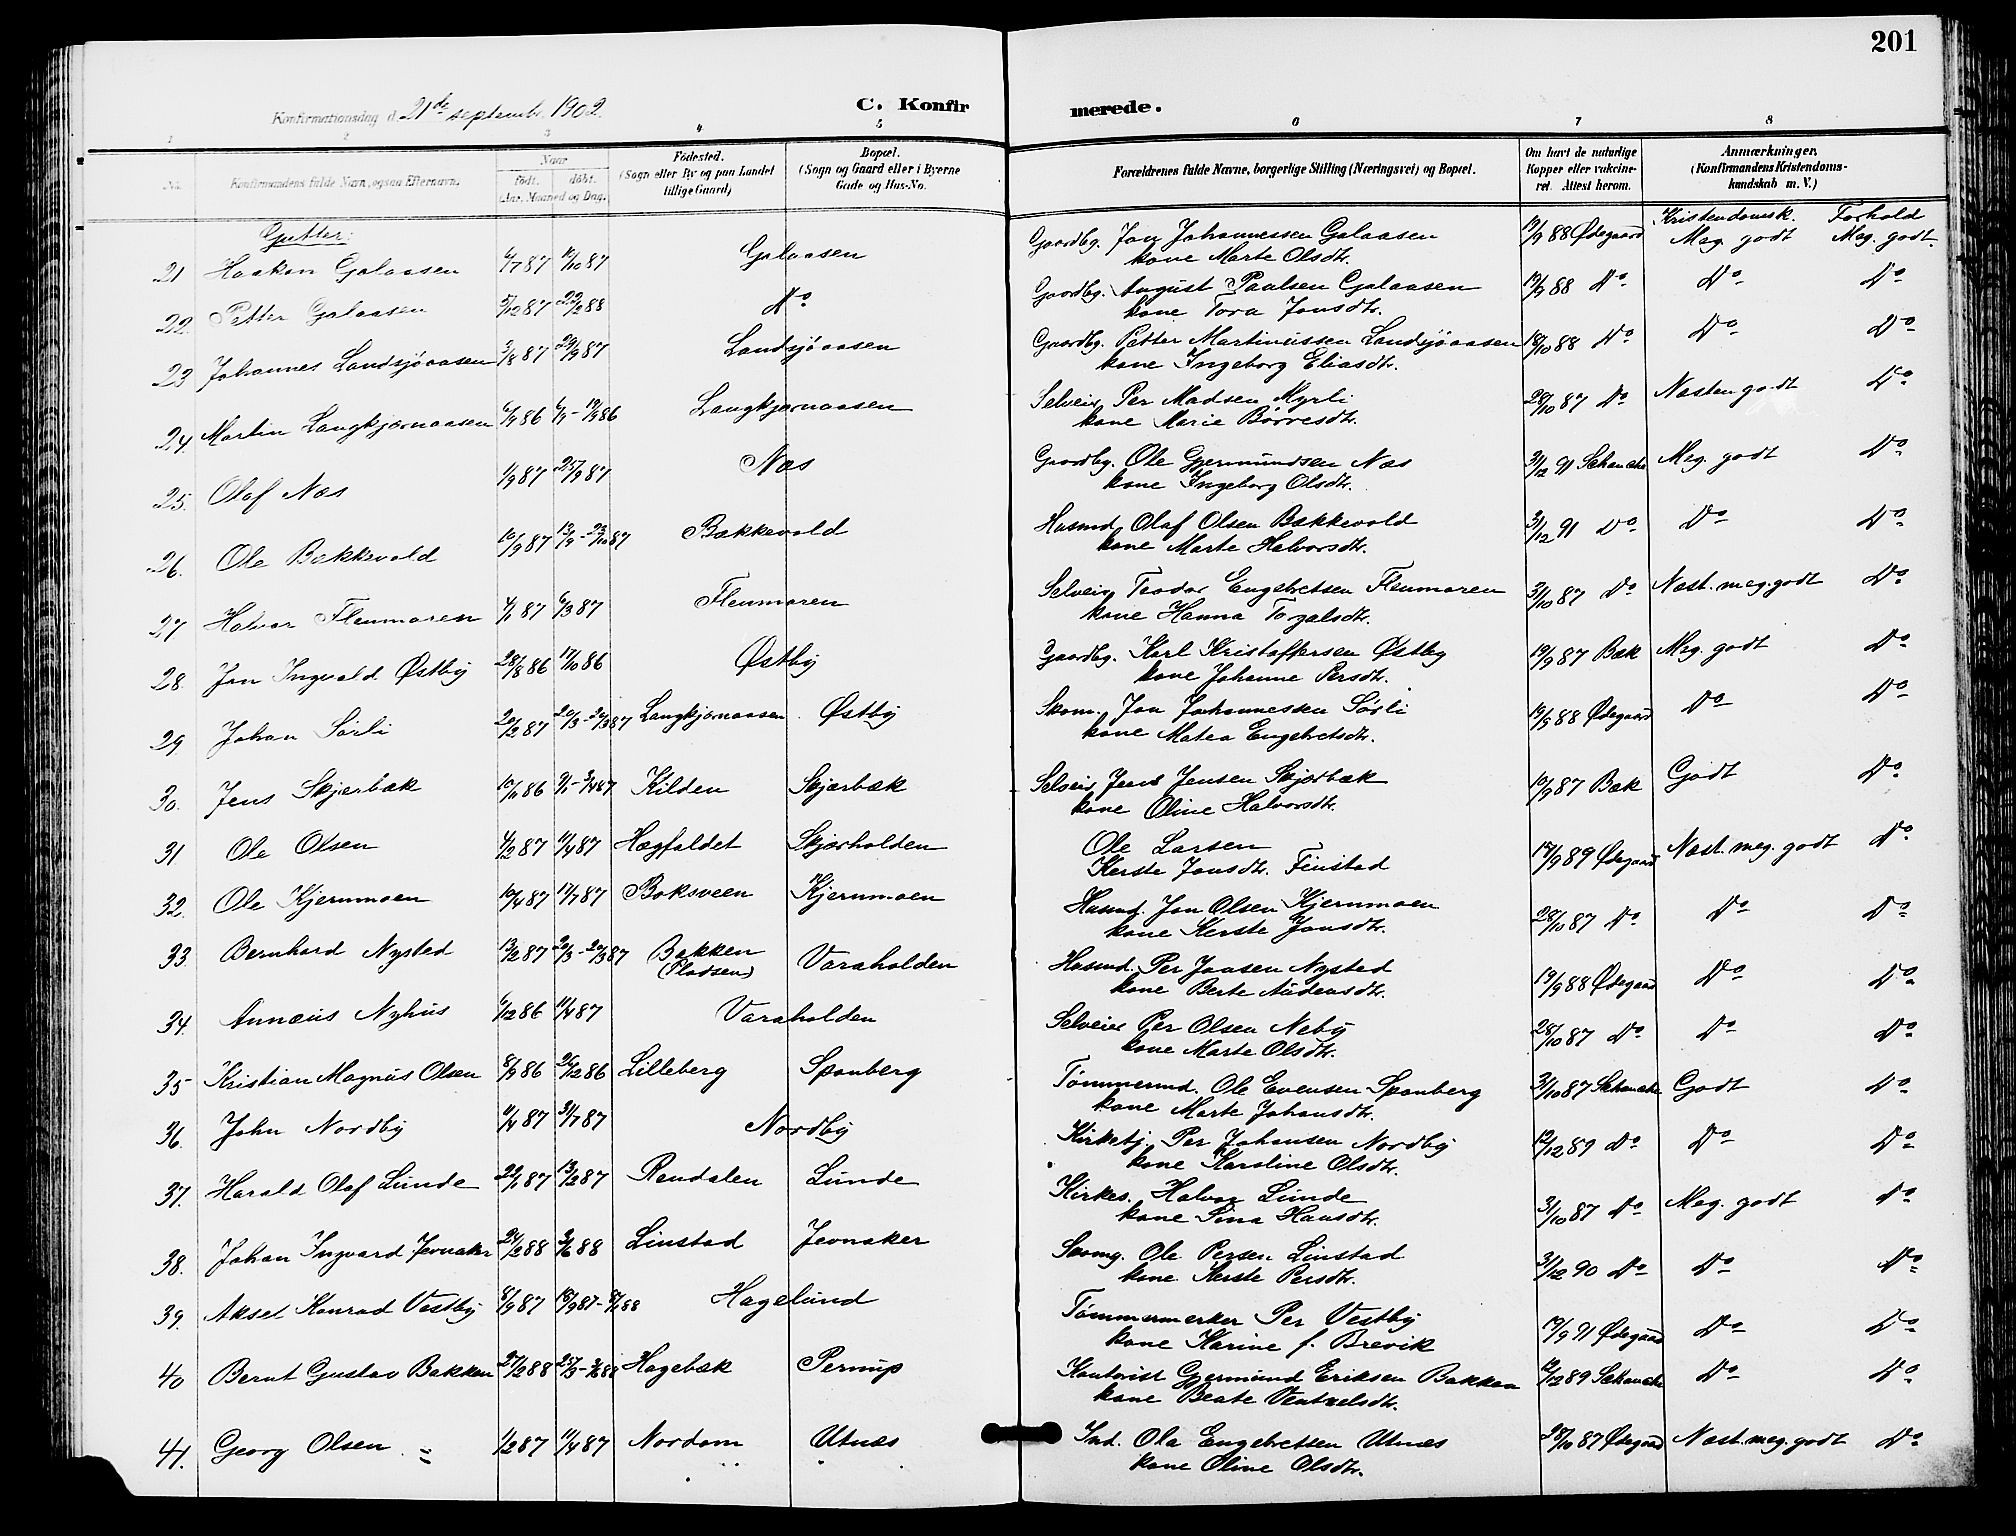 201
Konfirmationsdag d. 21de septembr. 1902.
C. Konfirmerede.
1 2 3 4 5 6 7 8
No. Konfirmandens fulde Navn, ogsaa Efternavn. Naar födt. döbt. (Aar, Maaned og Dag.) Födested. (Sogn eller By og paa Landet tillige Gaard) Bopæl. (Sogn og Gaard eller i Byerne Gade og Hus-No. Forældrenes fulde Navne, borgerlige Stilling (Næringsvei) og Bopæl. Om havt de naturlige Kopper eller vakcineret. Attest herom. Anmærkninger, (Konfirmandens Kristendomskundskab m. V.)
Gutter: Kristendomsk. Forhold
21 Haakon Galaasen 4/7 87 10/10 87 Galaasen Gaardbg. Jon Johannessen Galaasen 19/9 88 Ødegaard Meg. godt Meg. godt
kone Marte Olsdt.
22. Petter Galaasen 5/12 87 22/2 88 Do Gaardbg. August Paulsen Galaasen 19/9 88 Do Do Do
kone Tora Jonsdt.
23 Johannes Landsjöaasen 3/8 87 29/9 87 Landsjöaasen Gaardbg. Petter Martinussen Landsjöaasen 18/10 88 Do Do Do
kone Ingeborg Eliasdt.
24. Martin Langkjærnaasen 6/9 86 6/9 - 19/9 86 Langkjærnaasen Selveier Per Madsen Myrli 28/10 87 Do Næsten godt Do
kone Marie Börresdt.
25. Olaf Næs 1/9 87 25/9 87 Næs Gaardbg. Ole Gjermundsen Næs 31/12 91 Meg. godt Do
kone Ingeborg Olsdt.
26. Ole Bækkevold 10/9 87 Bækkevold Husmd. Olaf Olsen Bækkevold 31/12 91 Do Do Do
kone Marte Halvorsdt.
27 Halvor Flenmoren 4/1 87 6/3 87 Flenmoren Selveier Teodor Engebretsen Flenmoren 31/10 87 Do Næst. meg. godt Do
kone Hanna Torgalsdt.
28. Jon Ingvald Østby 28/8 86 17/10 86 Østby Gaardbg. Karl Kristoffersen Østby 19/9 87 Bæk Meg. godt Do
kone Johanne Persdt.
29 Johan Sörli 20/2 87 Langkjærnaasen Østby Skom. Jon Johannessen Sörli 19/9 88 Ødegaard Do Do
kone Matea Engebretsdt.
30. Jens Skjærbæk 10/11 86 Kilden Skjærbæk Selveier Jens Jensen Skjærbæk 19/9 87 Bæk Godt Do
kone Oline Halvorsdt.
31 Ole Olsen 4/2 87 11/4 87 Hægfaldet Skjærholden Ole Larsen 17/9 89 Ødegaard Næst. meg. godt Do
Kerste Jonsdt. Finstad
32. Ole Kjernmoen 10/4 87 17/7 87 Boksveen Kjernmoen Husmd. Jon Olsen Kjernmoen 28/10 87 Do Do Do
kone Kerste Jonsdt.
33. Bernhard Nysted 13/2 87 Bakken Varaholden Husmd. Per Jonsen Nysted 19/9 88 Ødegaard Do Do
(Pladsen) kone Berte Audensdt.
34. Annæus Nyhus 6/12 86 11/4 87 Varaholden Selveier Per Olsen Neby 28/10 87 Do Do Do
kone Marte Olsdt.
35 Kristian Magnus Olsen 8/9 86 26/12 86 Lilleberg Spanberg Tömmermd. Ole Evensen Spanberg 31/10 87 Godt Do
kone Marte Johansdt.
36. John Nordby 11/4 87 31/7 87 Nordby Kirketj. Per Johansen Nordby 12/12 89 Do Do Do
kone Karoline Olsdt.
37. Harald Olaf Lunde 22/1 87 13/2 87 Rendalen Lunde Kirkes. Halvor Lunde 31/10 87 Do Meg. godt Do
kone Sina Hansdt.
38. Johan Ingvard Jevnaker 24/2 88 3/6 88 Linstad Jevnaker Ole Persen Linstad 31/12 90 Do Do Do
kone Kerste Persdt.
39. Aksel Konrad Vestby 8/9 87 Hagelund Tömmermerker Per Vestby 17/9 91 Ødegaard Do Do
kone Karine f. Brevik
40 Bernt Gustav Bakken 27/2 88 Hagebæk Pernup Gjermund Eriksen Bakken 12/12 89 Do Do
kone Beate Ventzelsdt.
41. Georg Olsen 1/2 87 11/4 87 Nordom Utnæs Ind. Ola Engebretsen Utnæs 28/10 87 Ødegaard Næst. meg. godt Do
kone Oline Olsdt.